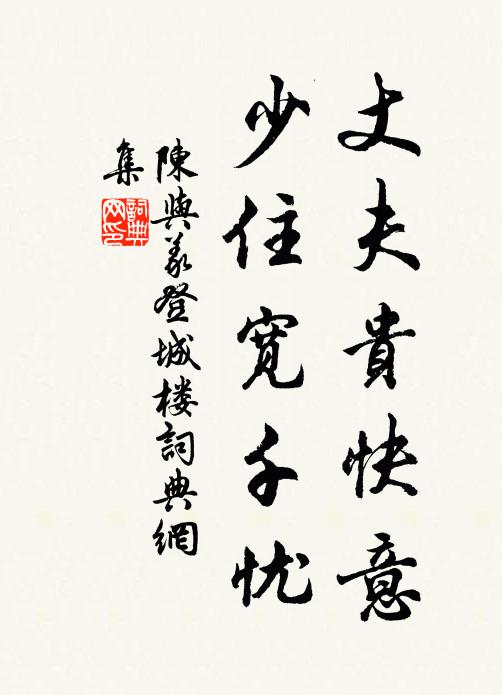 丈夫貴快意
少住寬千忧
陳與義登城楼詞典網
集
詞典
网印